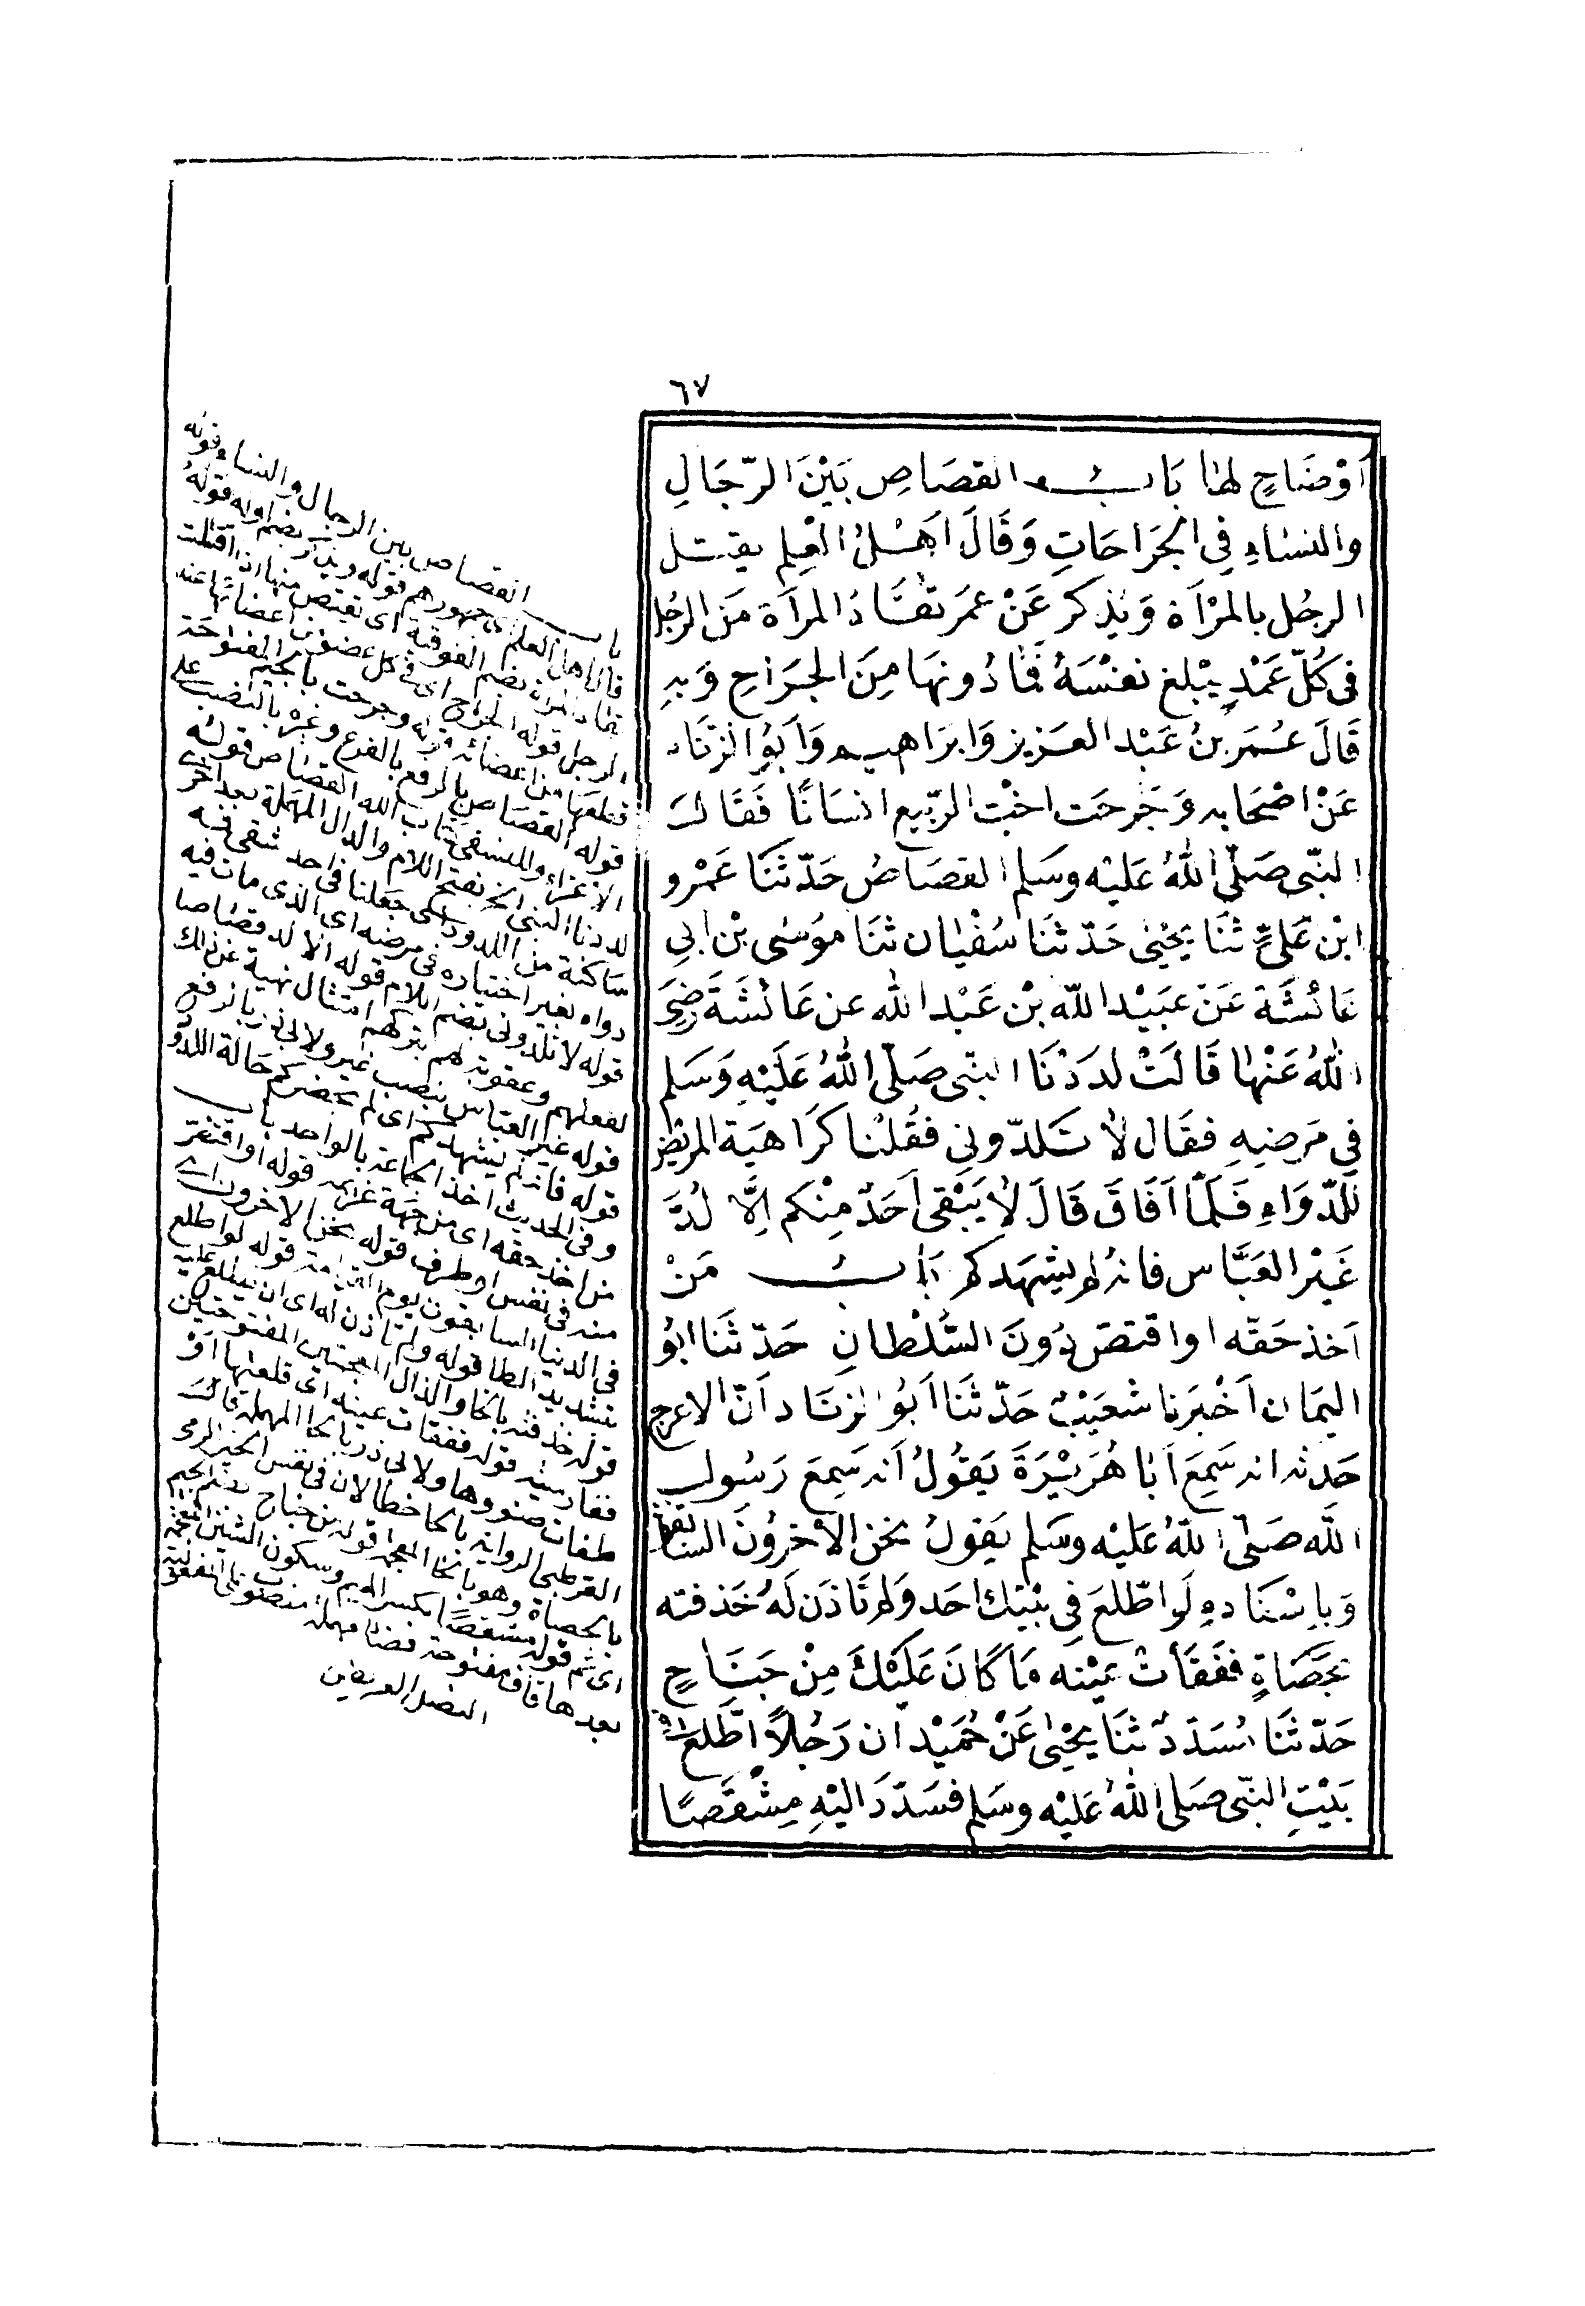 ٦٧
أَوْضَاحٍ لهَا بَابُ القصَاصِ بَيْنَ الرّجَالِ
والنسَاءِ فِي الجَرَاحَاتِ وَقَالَ اَهْلُ العِلم يقتل
الرجُل بالمرْاَة وَيُذكر عَنْ عمَر تقَادُ المرأة مَن الرجُل
فى كُلّ عَمْدٍ يبْلغ نفْسَهُ فمَا دُونهَا مِنَ الجرَاحِ وَبهِ
قَالَ عُمَر بنُ عَبْد العَزيز وَابرَاهيم وَاَبُو الزنَاد
عَنْ اصْحَابه وَجَرحَت اخْت الربّيع انسَانًا فَقَالَ
النبّى صَلّى اللهُ عَليْه وسَلم القصَاصُ حَدّثنَا عَمْرو
ابْن عَلىٍّ ثنَا يَحْيَىٰ حَدّثنَا سُفْيَان ثنَا موُسَى بْن ابِي
عَائشَة عَنْ عبَيْد اللّه بْن عَبْد اللّه عن عَائشَةَ رَضِيَ
اللّهُ عَنْهَا قَالَتْ لددْنَا النبّى صَلّى اللّهُ عَلَيْهِ وَسَلم
فِي مَرضِهِ فقَال لاَ تَلدّونِي فقُلنا كرَاهيَة المريْض
للدّوَاءِ فَلَمّا اَفَاقَ قَالَ لاَ يَبْقى اَحَدٌ مِنْكم اِلَّا لُدَّ
غَيْر العَبَّاس فانهُ لم يشهَدكم بَابُ مَنْ
اَخذ حَقّه او اقتصّ دُونَ السُّلْطانِ حَدّثنَا ابُو
اليمَان اَخْبَرنا شعَيْبٌ حَدّثنَا اَبُو الزنَاد اَنّ الاعرج
حَدثه انه سَمِعَ اَبَا هُرَيْرَةَ يَقُولُ اَنه سَمِعَ رَسُول
اللّه صَلّى اللّهُ عَليْه وسَلم يَقولُ نحَن الآخرُونَ السَّابقونَ
وَبِاسْنَادهِ لَو اطّلعَ فِي بيْتك احَد وَلم تَاذَن لَهُ خَذفته
بحَصَاةٍ ففَقَأتَ عيْنه مَا كَانَ عَلَيْكَ مِنْ جَنَاحٍ
حَدّثنَا مُسَدّدٌ ثنَا يَحْيَى عَنْ حُمَيْد اَن رَجُلاً اطَّلعَ فى
بَيْتِ النبّى صَلى اللهُ عَليْه وسَلم فسَدّدَ اليْهِ مِشْقَصًا
باب القصاص بين الرجال والنساء قوله
قال اهل العلم اى جمهورهم قوله ويذكر بضم اوله قوله
تقاد المراة بضم الفوقية اى يقتص منها اذا قتلت
الرجل قوله الجراح اى فى كل عضو من اعضائها عند
قطعها من اعضائه قوله وجرحت بالجيم المفتوحة
قوله القصاص بالرفع بالفرع وغيره بالنصب على
الاغراء وللنسفى كتاب الله القصاص قوله
لددنا النبى الخ بفتح اللام والدال المهملة بعد اخرى
ساكنة من اللدود اى جعلنا فى احد شقى فمه
دواء بغير اختياره فى مرضه اى الذى مات فيه
قوله لا تلدونى بضم اللام قوله الا لد قصاصا
لفعلهم وعقوبة لهم بتركهم امتثال نهيه عن ذلك
قوله غير العباس بنصب غير ولابى ذر بالرفع
قوله فانه لم يشهدكم اى لم يحضركم حالة اللدود
وفى الحديث اخذ الجماعة بالواحد باب
من اخذ حقه اى من جهة غريمه قوله او اقتص
منه فى نفس او طرف قوله نحن الاخرون اى
فى الدنيا السابقون يوم القيامة قوله لو اطلع
بتشديد الطا قوله ولم تاذن له اى ان يطلع عليه
قوله خذفته بالخا والذال المعجمتين المفتوحتين
ففقات عينه اى قلعتها او
القرطبى الرواية بالحا خطا لان فى نفس الخبر الرمى
بالحصاة وهو بالخا المعجمة قوله من جناح بضم الجيم
اى اثم قوله مشقصا بكسر الميم وسكون الشين المعجمة
بعدها قاف مفتوحة فصاد مهملة منصوب
النصل العريض